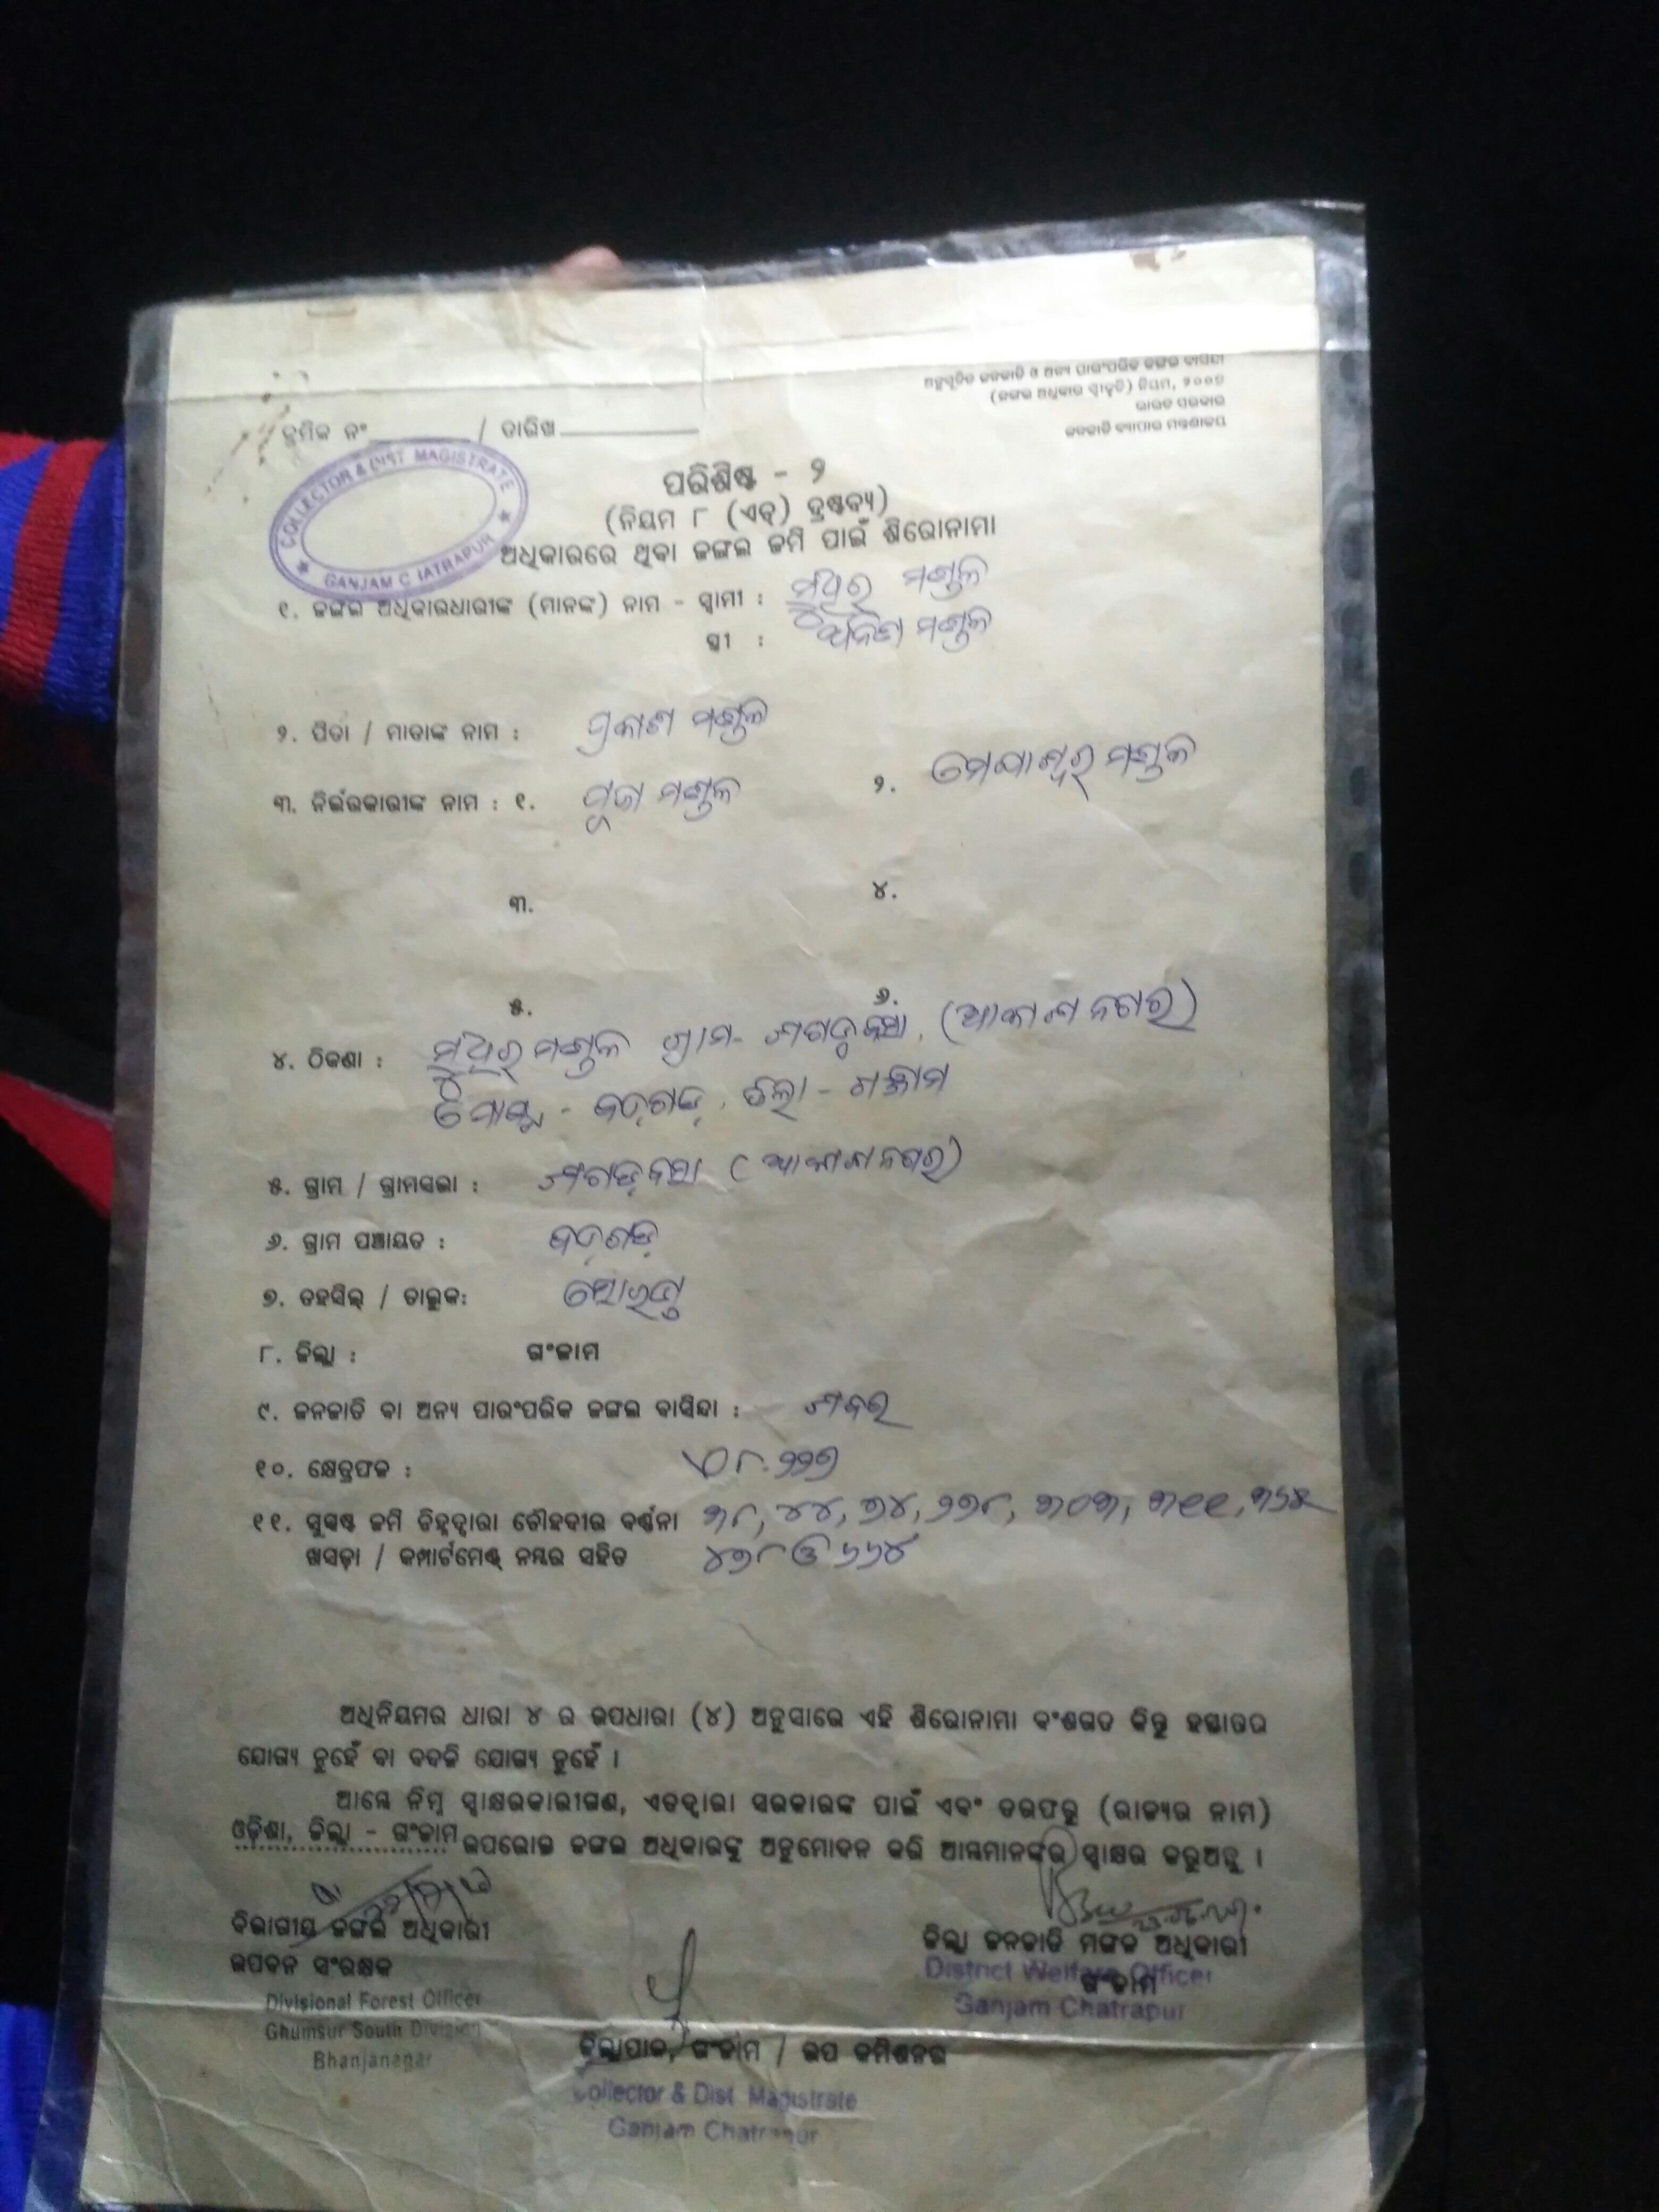 ଅନୁସୂଚିତ ଜନଜାତି ଓ ଅନ୍ୟ ପାରଂପରିକ ଜଙ୍ଗଲ ବାସିନ୍ଦା
(ଜଙ୍ଗଲ ଅଧିକାର ସ୍ୱୀକୃତି) ନିୟମ, ୨୦୦୭
ଭାରତ ସରକାର
ଜନଜାତି ବ୍ୟାପାର ମନ୍ତ୍ରଣାଳୟ
କ୍ରମିକ ନଂ / ତାରିଖ
COLLECTOR & DIST MAGISTRATE
GANJAM C IATRAPUR
ପରିଶିଷ୍ଟ - ୨
(ନିୟମ ୮ (ଏଚ୍) ଦ୍ରଷ୍ଟବ୍ୟ)
ଅଧିକାରରେ ଥିବା ଜଙ୍ଗଲ ଜମି ପାଇଁ ଶିରୋନାମା
୧. ଜଙ୍ଗଲ ଅଧିକାରଧାରୀଙ୍କ (ମାନଙ୍କ) ନାମ - ସ୍ୱାମୀ : ମଣ୍ଡଳ
ସ୍ତ୍ରୀ : ମଣ୍ଡଳ
୨. ପିତା / ମାତାଙ୍କ ନାମ : ପ୍ରକାଶ ମଣ୍ଡଳ
୩. ନିର୍ଭରକାରୀଙ୍କ ନାମ : ୧. ପୂଜା ମଣ୍ଡଳ ୨. ମଣ୍ଡଳ
୩. ୪.
୫. ୬.
୪. ଠିକଣା : ମଣ୍ଡଳ ଗ୍ରାମ- (ଆକାଶ ନଗର)
ପୋଷ୍ଟ - ବଡ଼ଗଡ଼, ଜିଲ୍ଲା - ଗଞ୍ଜାମ
୫. ଗ୍ରାମ / ଗ୍ରାମସଭା : (ଆକାଶ ନଗର)
୬. ଗ୍ରାମ ପଞ୍ଚାୟତ : ବଡ଼ଗଡ଼
୭. ତହସିଲ୍ / ତାଲୁକ: ସୋରଡ଼ା
୮. ଜିଲ୍ଲା : ଗଂଜାମ
୯. ଜନଜାତି ବା ଅନ୍ୟ ପାରଂପରିକ ଜଙ୍ଗଲ ବାସିନ୍ଦା : ଶବର
୧୦. କ୍ଷେତ୍ରଫଳ :
୧୧. ସୁସ୍ପଷ୍ଟ ଜମି ଚିହ୍ନଦ୍ୱାରା ଚୌହଦୀର ବର୍ଣ୍ଣନା ୩୮, ୪୪, ୭୪, ୨୭୮, ୩୦୩, ୩୧୧,
ଖସଡ଼ା / କମ୍ପାର୍ଟମେଣ୍ଟ୍ ନମ୍ବର ସହିତ ୪୭୮ ଓ ୬୬୪
ଅଧିନିୟମର ଧାରା ୪ ର ଉପଧାରା (୪) ଅନୁସାରେ ଏହି ଶିରୋନାମା ବଂଶଗତ କିନ୍ତୁ ହସ୍ତାନ୍ତର
ଯୋଗ୍ୟ ନୁହେଁ ବା ବଦଳି ଯୋଗ୍ୟ ନୁହେଁ ।
ଆମ୍ଭେ ନିମ୍ନ ସ୍ୱାକ୍ଷରକାରୀଗଣ, ଏତଦ୍ୱାରା ସରକାରଙ୍କ ପାଇଁ ଏବଂ ତରଫରୁ (ରାଜ୍ୟର ନାମ)
ଓଡ଼ିଶା, ଜିଲ୍ଲା - ଗଂଜାମ ଉପରୋକ୍ତ ଜଙ୍ଗଲ ଅଧିକାରଙ୍କୁ ଅନୁମୋଦନ କରି ଆମ୍ଭମାନଙ୍କର ସ୍ୱାକ୍ଷର କରୁଅଛୁ ।
ବିଭାଗୀୟ ଜଙ୍ଗଲ ଅଧିକାରୀ
ଉପବନ ସଂରକ୍ଷକ
Divisional Forest Officer
Ghumsur South Division
Bhanjanagar
ଜିଲ୍ଲା ଜନଜାତି ମଙ୍ଗଳ ଅଧିକାରୀ
ଗଂଜାମ
District Welfare Officer
Ganjam Chatrapur
ଜିଲ୍ଲାପାଳ, ଗଂଜାମ / ଉପ କମିଶନର
Collector & Dist Magistrate
Ganjam Chatrapur